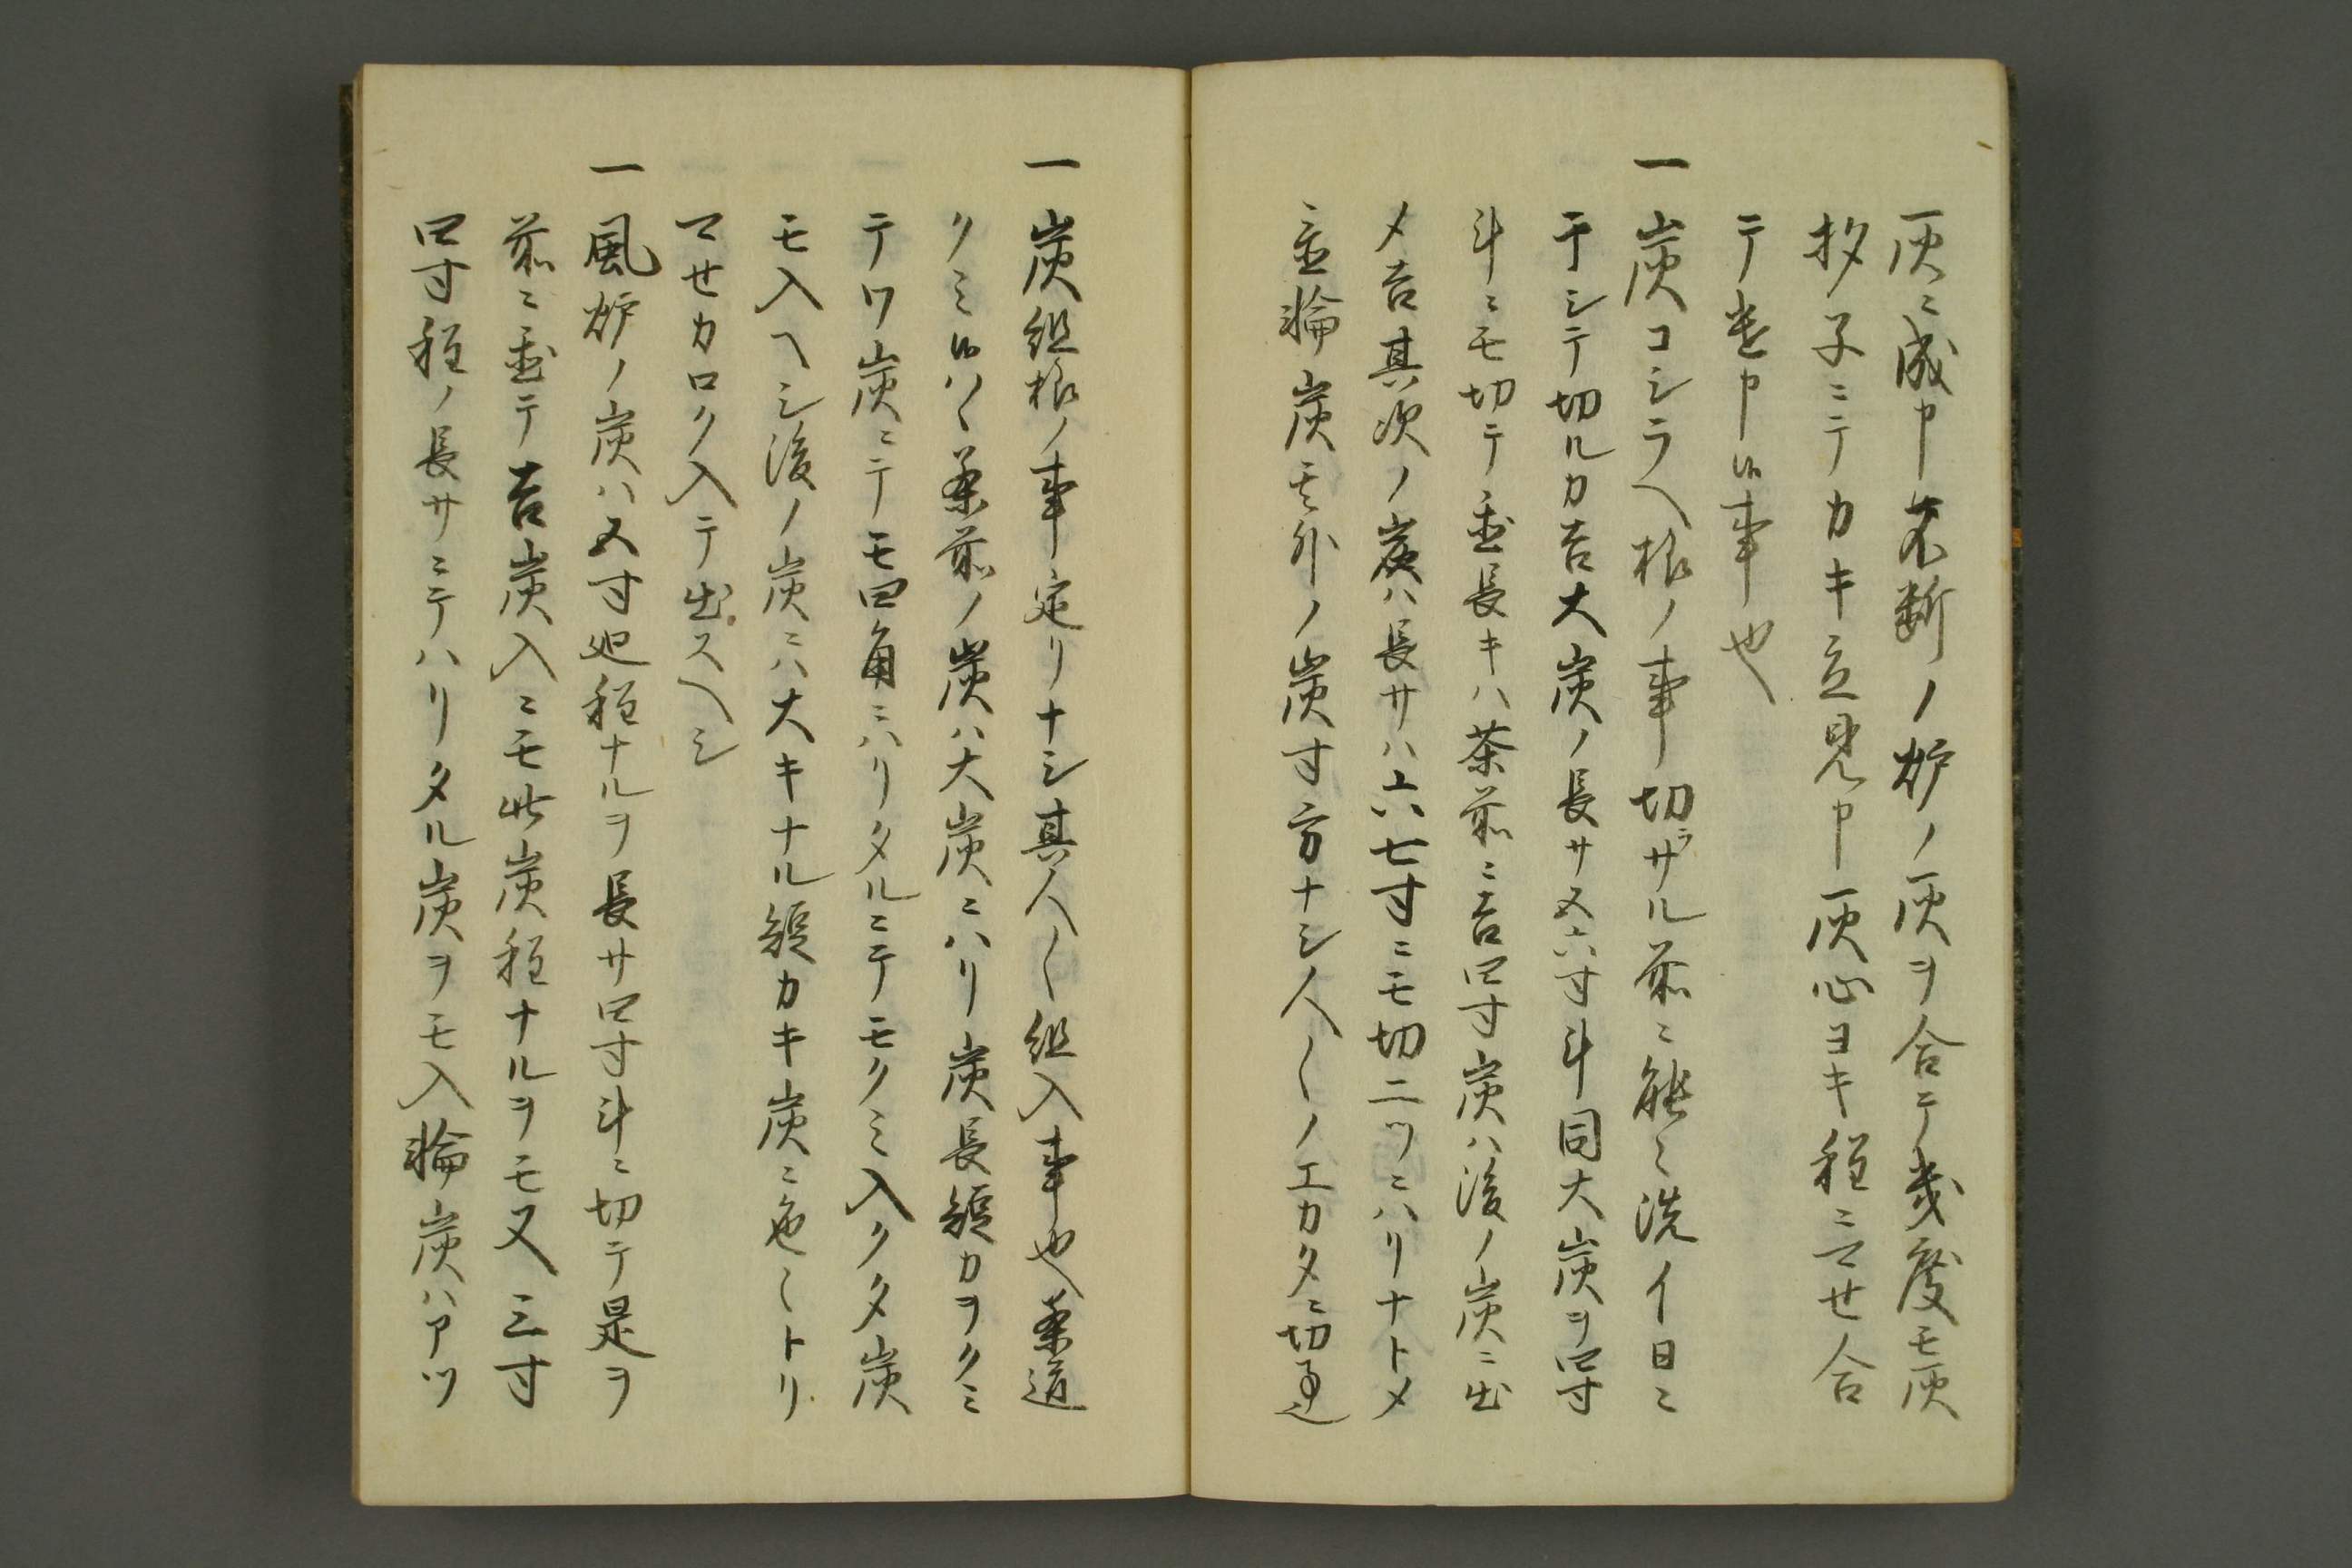 灰ニ成申不断ノ炉ノ灰ヲ合テ幾度モ灰
杪子ニテカキ立見申灰心ヨキ程ニマセ合
テ置申候事也
一炭コシラヘ様ノ事切ラザル前ニ能々洗イ日ニ
干シテ切ルカ吉大炭ノ長サ五六寸斗同大炭ヲ四寸
斗ニモ切テ置長キハ茶前ニ吉四寸炭ハ後ノ炭ニ出
メ吉其次ノ炭ハ長サハ六七寸ニモ切二ツニハリナトメ
置輪炭其外ノ炭寸方ナシ人〱ノエカタニ切事也
一炭組様ノ事定リナシ其人〱組入事也茶道
クミ候ハヽ茶前ノ炭ハ大炭ニハリ炭長短カヲクミ
テワ炭ニテモ四角ニハリタルニテモクミ入クタ炭
モ入ヘシ後ノ炭ニハ大キナル短カキ炭ニ色〱トリ
マセカロク入テ出スヘシ
一風炉ノ炭ハ五寸廻程ナルヲ長サ四寸斗ニ切テ是ヲ
前ニ置テ吉炭入ニモ此炭程ナルヲモ又三寸
四寸程ノ長サニテハリタル炭ヲモ入輪炭ハアツ